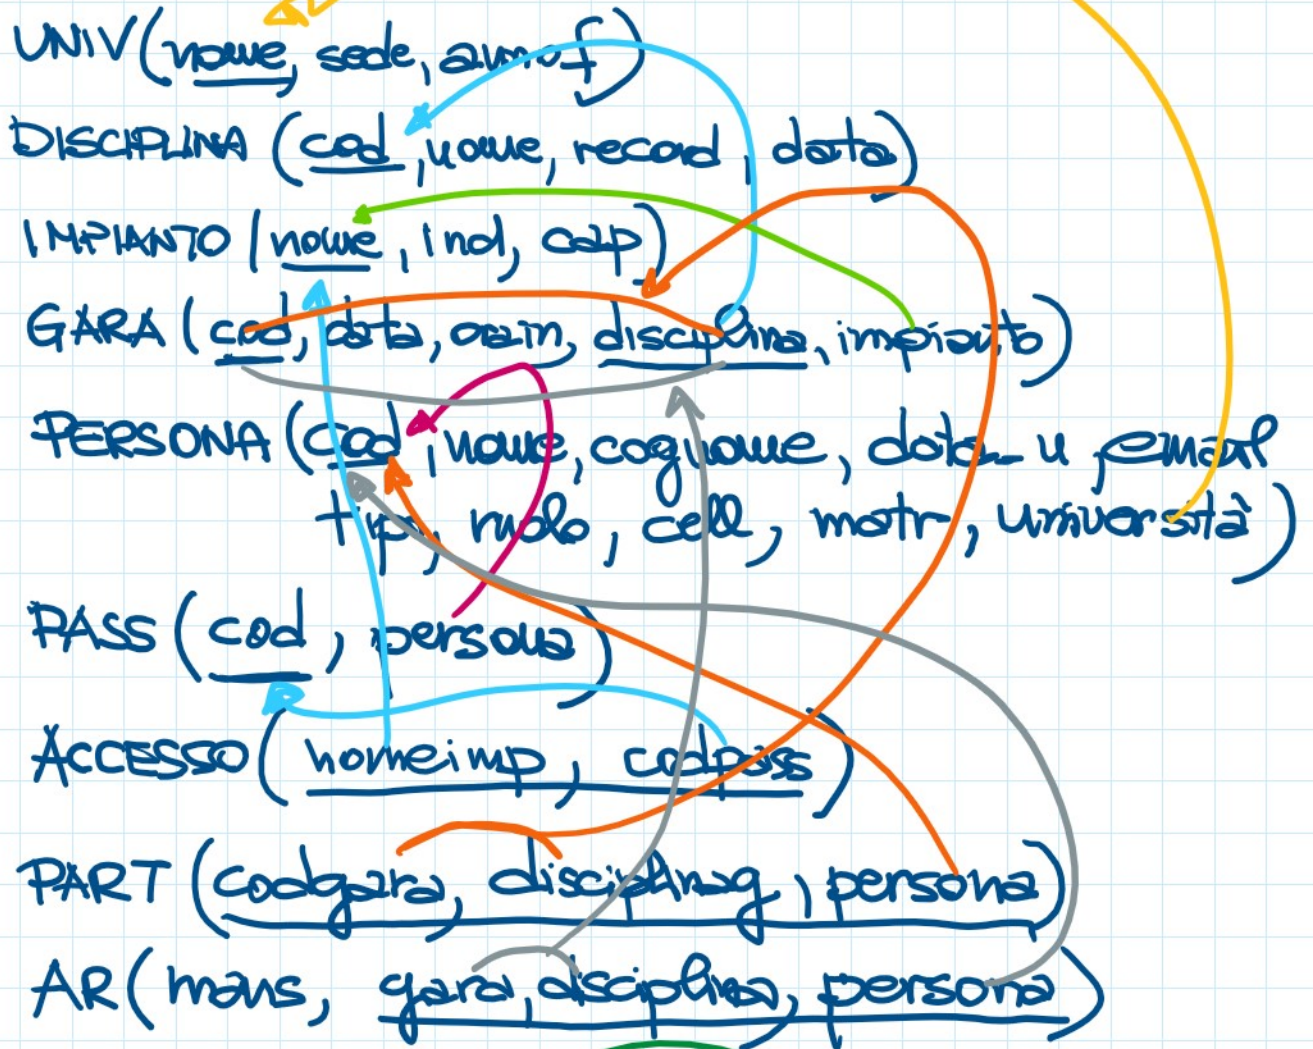 UNIV(nome, sede, annof)
DISCIPLINA (cod, nome, record, data)
IMPIANTO (nome, ind, cap)
GARA (cod, data, orain, disciplina, impianto)
PERSONA (cod, nome, cognome, data_n, email
tipo, ruolo, cell, matr, università)
PASS (cod, persona)
ACCESSO (nomeimp, codpass)
PART (codgara, disciplinag, persona)
AR (mans, gara, disciplina, persona)